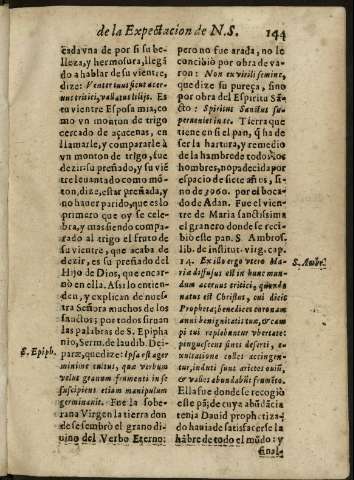 de la Expectacion de N.S. 144
cada vna de por si su be-
lleza, y hermosura, llegã
do a hablar de su vientre,
dize: Venter tuus sicut acer-
uus tritici, vallatus lilijs. Es
tu vientre Esposa mia, co
mo vn monton de trigo
cercado de açucenas, en
llamarle, y compararle à
vn monton de trigo, fue
dezir su preñado, y su viẽ
tre leuantado como mõ-
ton, dize, estar preñada, y
no hauer parido, que es lo
primero que oy se cele-
bra, y mas siendo compa-
rado al trigo el fruto de
su vientre, que acaba de
dezir, es su preñado del
Hijo de Dios, que encar-
nò en ella. Assi lo entien-
den, y explican de nues-
tra Señora muchos de los
sanctos; por todos siruan
las palabras de S. Epipha
nio, Serm. de laudib. Dei-
paræ, que dize: Ipsa est ager
minime cultus, quæ verbum
velut granum frumenti in se
suscipiens etiam manipulum
germinauit. Fue la sobe-
rana Virgen la tierra don
de se sembrò el grano di-
uino del Verbo Eterno:
S. Epiph.
pero no fue arada, no le
concibiò por obra de va-
ron: Non ex virili semine,
que dize su pureça, sino
por obra del Espiritu Sã-
cto: Spiritus Sanctus su-
perueniet in te. Tierra que
tiene en si el pan, q̃ ha de
ser la hartura, y remedio
de la hambre de todos los
hombres, no padecida por
espacio de siete años, si-
no de 3960. por el boca-
do de Adan. Fue el vien-
tre de Maria sanctissima
el granero donde se reci-
biò este pan. S. Ambros.
lib. de institut. virg. cap.
14. Ex illo ergo vtero Ma-
ria diffusus est in hunc mun-
dum aceruus tritici, quando
natus est Christus, cui dicit
Propheta; benedices coronam
anni benignitatis tuæ, & cam
pi tui replebuntur vbertate:
pinguescent fines deserti, ex-
ultatione colles accingen-
tur, induti sunt arietes ouiũ,
& valles abundabũt frumẽto.
Ella fue donde se recogiò
este pã; de cuya abũdãcia
tenia Dauid prophetiza-
do hauia de satisfacerse la
hãbre de todo el mũdo: y
final-
S. Ambr.